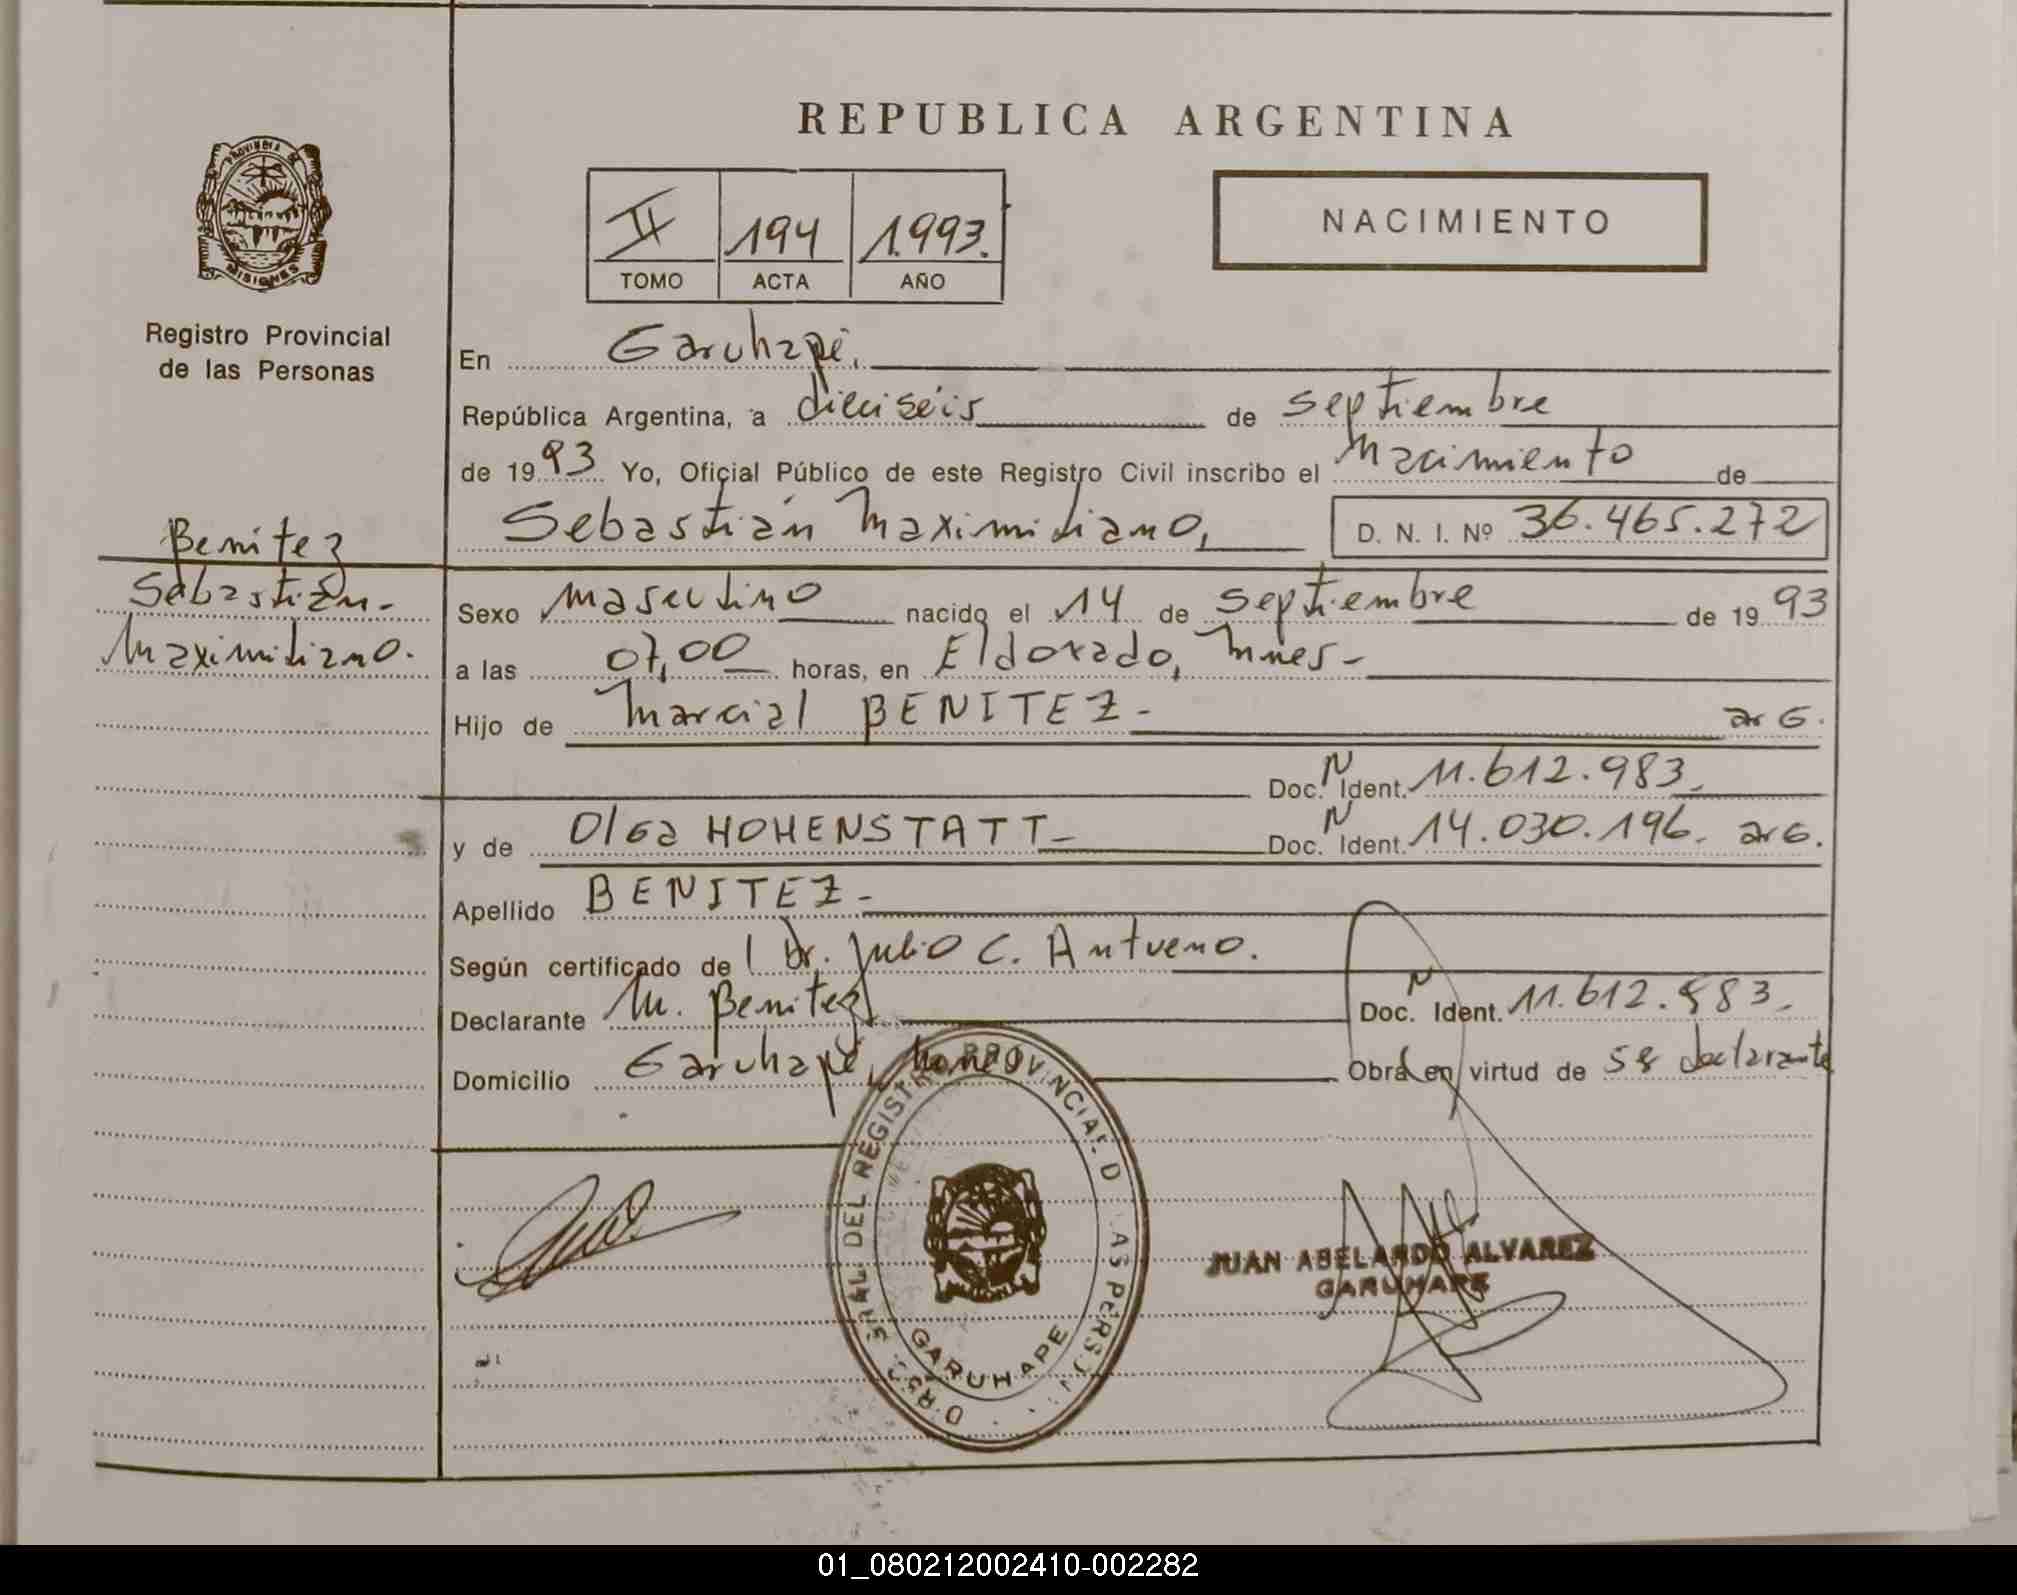 REPUBLICA ARGENTINA
PROVINCIA DE
MISIONES
Registro Provincial
de las Personas
II 194 1.993.
TOMO ACTA AÑO
NACIMIENTO
En Garuhapé,
República Argentina, a dieciséis de septiembre
de 1993 Yo, Oficial Público de este Registro Civil inscribo el Nacimiento de
Sebastián Maximiliano, D. N. I. Nº 36.465.272
Benitez
Sebastián
Maximiliano.
Sexo Masculino nacido el 14 de septiembre de 1993
a las 07,00 horas, en Eldorado, Mnes-
Hijo de Marcial BENITEZ - arG.
Doc. N Ident. 11.612.983
y de Olga HOHENSTATT - Doc. N Ident. 14.030.196. arG.
Apellido BENITEZ -
Según certificado de l Dr. Julio C. Antueno.
Declarante M. Benitez Doc. N Ident. 11.612.983.
Domicilio Garuhapé, Obra en virtud de ser declarante
REGISTRO PROVINCIAL D LAS PERS
GARUHAPE
JUAN ABELARDO ALVAREZ
GARUHAPE
01_080212002410-002282